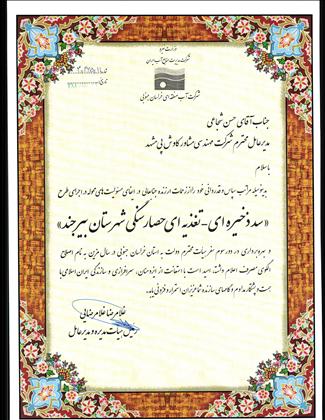 وزارت نیرو
شرکت مدیریت منابع آب ایران
شرکت آب منطقه ای خراسان جنوبی
جناب آقای حسن شجاعی
مدیرعامل محترم شرکت مهندسی مشاور کاوش پی مشهد
با سلام
بدینوسیله مراتب سپاس و قدردانی خود را از زحمات ارزنده جنابعالی در ایفای مسئولیت های محوله در اجرای طرح
«سد ذخیره ای - تغذیه ای حصارسنگی شهرستان بیرجند»
و بهره برداری در دور سوم سفر هیات محترم دولت به استان خراسان جنوبی در سال مزین به نام اصلاح
الگوی مصرف اعلام داشته، امید است با استعانت از ایزدمنان، سرافرازی و سازندگی ایران اسلامی با
همت و پشتکار مداوم و گامهای سازنده شما عزیزان استمرار و فزونی یابد.
غلامرضا غلامرضایی
رئیس هیات مدیره و مدیرعامل